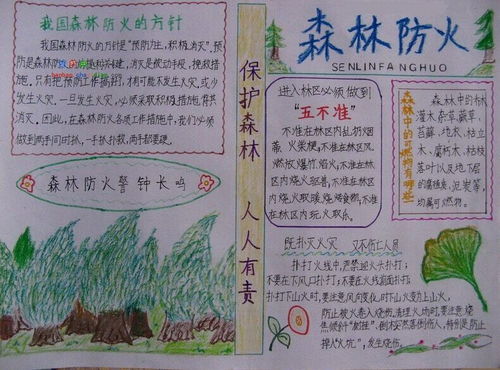 我国森林防火的方针
我国森林防火的方针是"预防为主,积极消灭"。预
防是森林防火的前提和关键,消灭是被动手段、挽救措
施。只有把预防工作搞好,才有可能不发生火灾,或少
发生火灾。一旦发生火灾,必须采取积极措施消灭
火灾。因此,在森林防火各项工作措施中,我们必须
做到两手同时抓,一手抓扑救,两手都要硬。
森林防火警钟长鸣
保护森林 人人有责
森林防火
SENLINFANGHUO
进入林区必须做到
"五不准"
不准在林区内乱扔烟
蒂、火柴梗,不准在林区
燃放爆竹、焰火;不准在林区
内烧火驱兽;不准在林区
内烧火取暖、烧烤食物;不准
在林区内玩火取乐。
森林中的可燃物有哪些
森林中的乔木
灌木、杂草、蕨草、
苔藓、地衣、枯立
木、腐朽木、枯枝
落叶以及地下层
的腐殖质、泥炭等,
均属可燃物。
既扑灭火灾 又不伤亡人员
扑打火线中,严禁迎火头扑打;
不要在下风口扑打;不要在火线前面扑打;
扑打下山火时,要注意风向变化,时下山火变为上山火,
防止被火卷入烧伤。清理火场时,要注意烧
焦倾斜"树挂"、倒木突然落倒伤人,特别是防止
掉入"火坑",发生烧伤。